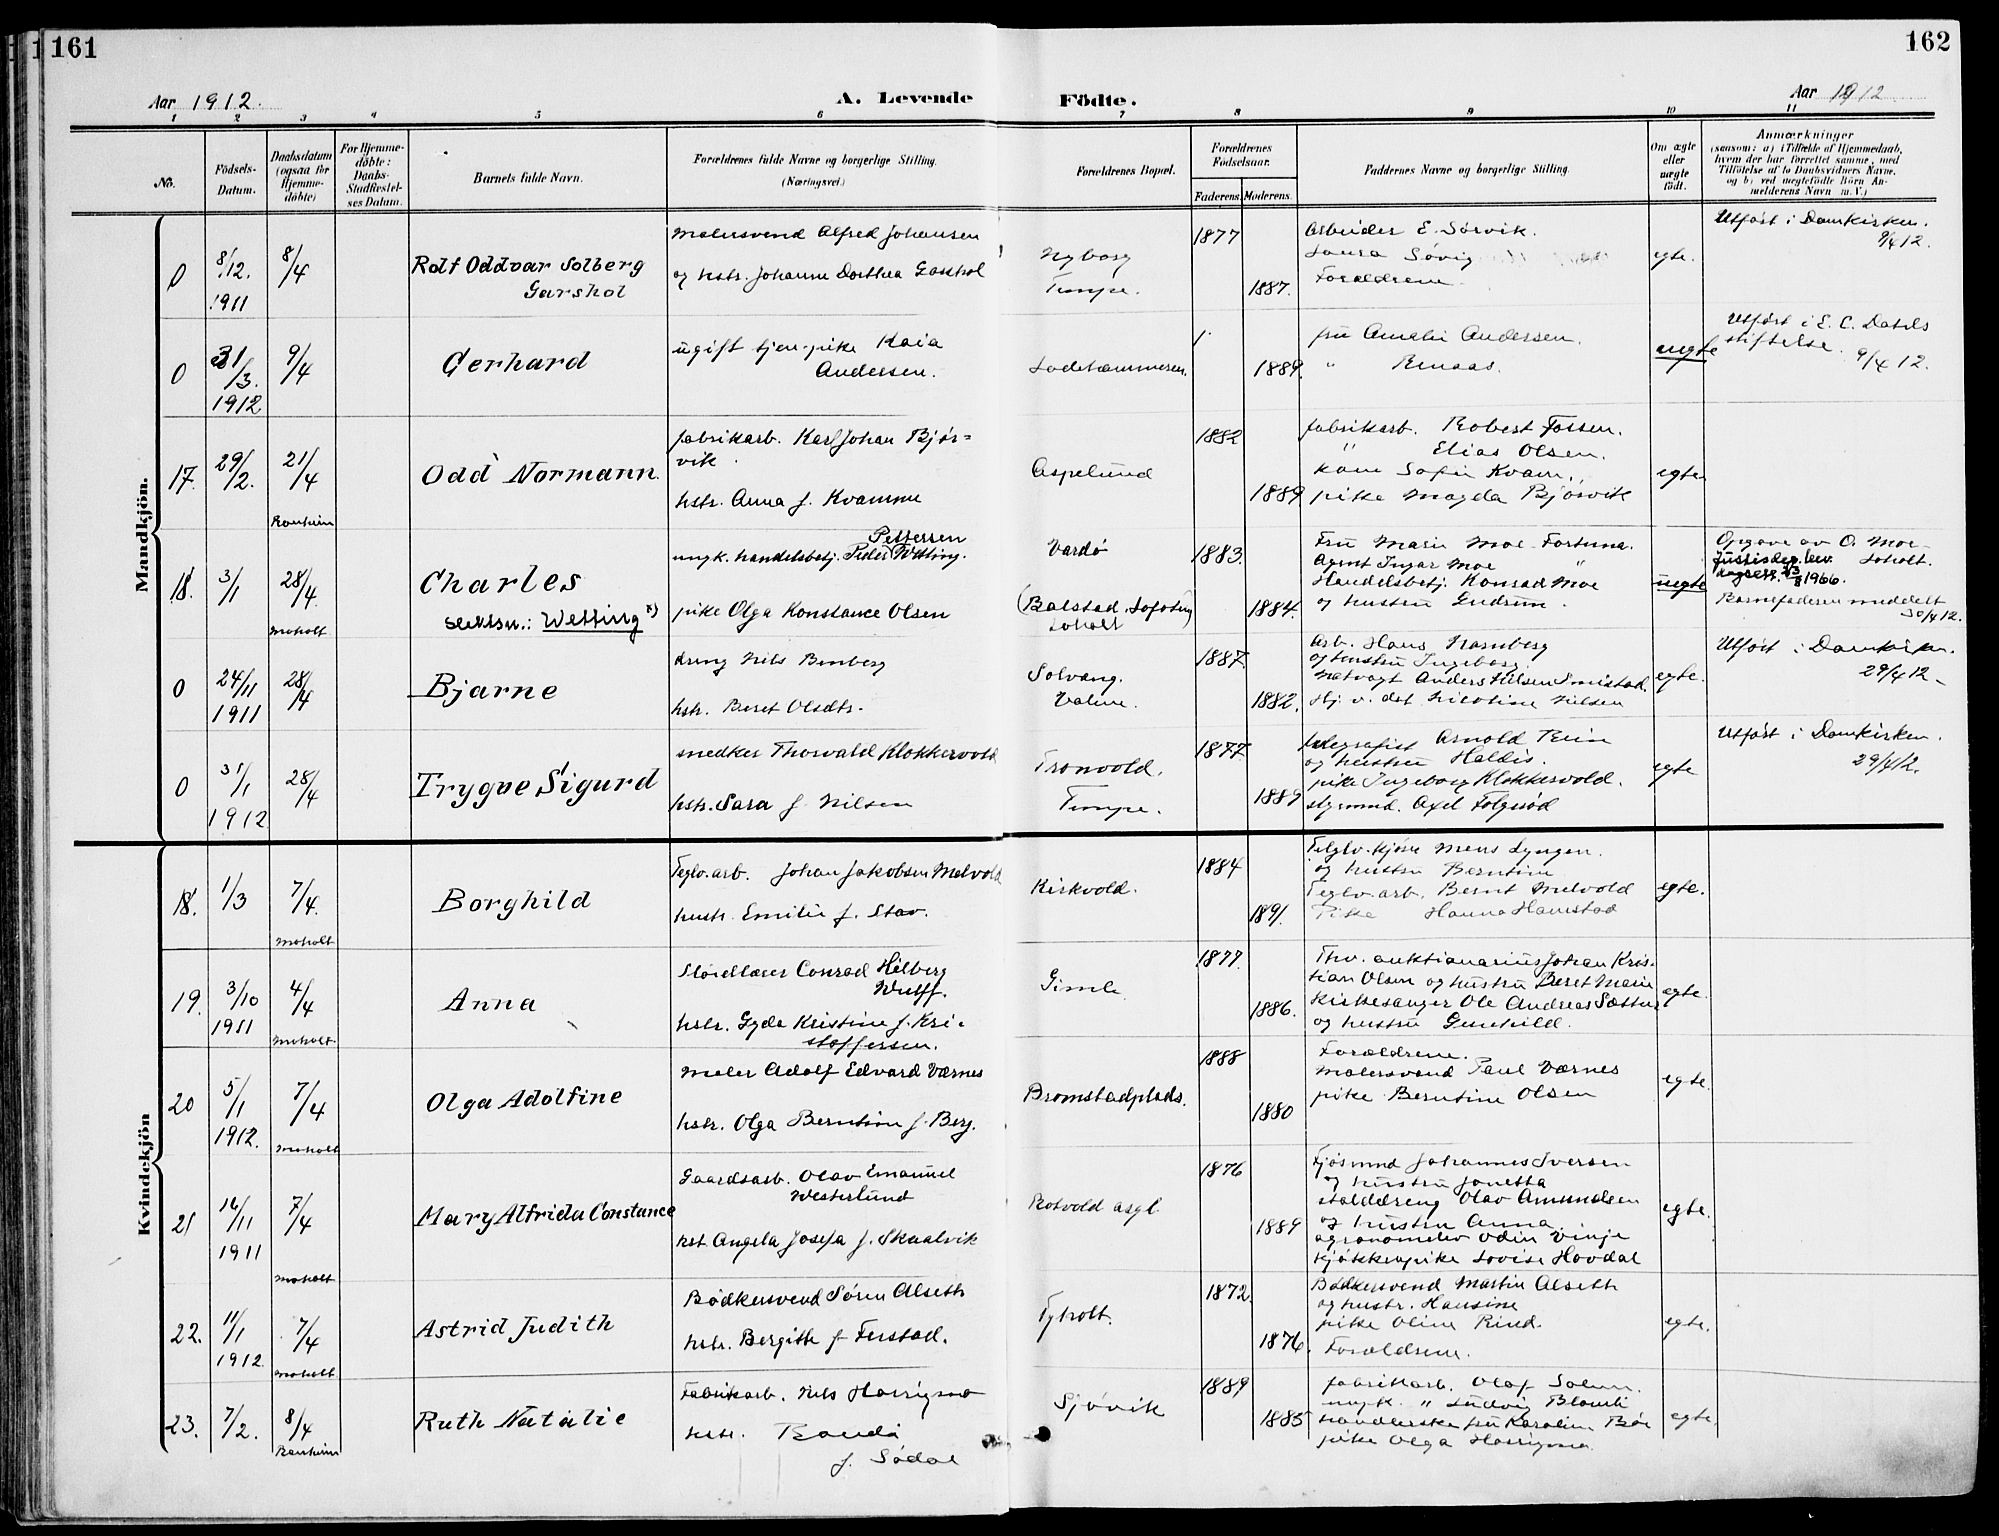 161
162
Aar 1912.
A. Levende
Födte.
Aar 1912
1 2 3 4 5 6 7 8 9 10 11
No.
Födsels-
Datum.
Daabsdatum
(ogsaa for
Hjemme-
döbte)
For Hjemme-
döbte:
Daabs-
Stadfæstel-
ses Datum.
Barnets fulde Navn.
Forældrenes fulde Navne og borgerlige Stilling.
(Næringsvei.)
Forældrenes Bopæl.
Forældrenes
Födselsaar.
Faderens. Moderens.
Faddernes Navne og borgerlige Stilling.
Om ægte
eller
uægte
födt.
Anmærkninger
(saasom: a) i Tilfælde af Hjemmedaab,
hvem der har forrettet samme, med
Tilföielse af to Daabsvidners Navne,
og b) ved uægtefödte Börn An-
melderens Navn m. V.)
Mandkjön.
0
8/12.
1911
8/4
Rolf Oddvar Solberg
Garshol
Malersvend Alfred Johansen
og hstr. Johanne Dorthea Garshol
Nyborg
Tempe.
1877
1887.
Arbeider E. Sørvik.
Laura Søvig
Forældrene.
egte.
Utført i Domkirken.
9/4 12.
0
31/3.
1912
9/4
Gerhard
ugift tjen. pike Kaia
Andersen.
Ladehammeren.
1889.
fru Amalie Andersen.
" Renaas.
uegte
Utført i E. C. Dahls
stiftelse. 9/4 12.
17.
29/2.
21/4
Ranheim
Odd Normann.
fabrikarb. Karl Johan Bjør=
vik.
hstr. Anna f. Kvamme
Aspelund
1882
1889
fabrikarb. Robert Fossen.
" Elias Olsen.
kone Sofie Kvam.
pike Magda Bjørvik
egte
18.
3/1
28/4.
Moholt
Charles
slektsn.: Wetting x)
Pettersen
ungk. handelsbetj. Peder Wetting.
pike Olga Konstance Olsen
Vardø
(Balstad, Lofoten)
Loholt
1883.
1884.
Fru Marie Moe Fortuna.
Agent Ingar Moe "
Handelsbetj. Konrad Moe
og hustru Gudrun.
uegte
Opgave av O. Moe
Loholt.
Justisdep. bev.
1966.
Barnefaderen meddelt
30/4 12.
0
24/11
1911
28/4
Bjarne
dreng Nils Benberg
hstr. Beret Olsdtr.
Solvang.
Valene.
1887.
1882.
Arb. Hans Kramberg
og hustru Ingeborg.
Natvagt Anders Nilsen Smistad.
Hj. v. det Nicoline Nilsen
egte.
Utført i Domkirken.
29/4 12.
0
31/1
1912
28/4
Trygve Sigurd
snedker Thorvald Klokkervold
hstr. Sara f. Nilsen
Tronvold.
Tempe.
1877.
1889
telegrafist Arnold Rein
og hustru Haldis.
pike Ingeborg Klokkervold.
styrmand. Axel Folgerød
egte
Utført i Domkirken.
29/4 12.
Kvindekjön
18.
1/3
7/4.
Moholt
Borghild
Teglv. arb. Johan Jakobsen Melvold
hustr. Emilie f. Stav.
Kirkvold.
1884
1891.
Teglv. kjøre Mens Lyngen.
og hustru Berntine
Teglv. arb. Bernt Melvold
Pike Hanna Hamstad
egte.
19.
3/10
1911
4/4
Moholt
Anna
Sløidlærer Conrad Hilberg
Wulff.
hstr. Gyda Kristine f. Kri-
stoffersen.
Gimle.
1877.
1886.
Thv. auktionarius Johan Kris-
tian Olsen og hustru Beret Marie
Kirkesanger Ole Andreas Sætter
og hustru Gunhild.
egte.
20
5/1
1912.
7/4
Moholt
Olga Adolfine
Maler Adolf Edvard Værnes
hstr. Olga Berntine f. Berg.
Bromstadplads.
1888
1880
Forældrene.
Malersvend Paul Værnes
pike Berntine Olsen
egte.
21
16/11
1911
7/4
Moholt
Mary Alfrida Constance
Gaardsarb. Olav Emanuel
Westerlund
hst. Angela Josefa f. Skaalvik
Rotvold asyl.
1876
1889
Fjøsmnd Johannes Iversen
og hustru Janetta
stalddreng Olav Amundsen
og hustru Anna
agronomelev Odin Vinje
kjøkkenpike Lovise Hovdal
egte.
22.
11/1
1912.
7/4
Moholt
Astrid Judith
Bødkersvend Søren Alseth
hstr. Bergitte f. Ferstad.
Tyholt.
1872.
1876.
Bødkersvend Martin Alseth
og hustr. Hansine
pike Oline Rind.
Forældrene.
egte.
23.
7/2.
8/4
Ranheim
Ruth Natalie
Fabrikarb. Nils Harrigmo
hstr. Randi
f. Sødal
Sjøvik
1889
1885
fabrikarb. Olaf Solem.
ungk. " Ludvig Blomli
handlerske fru Karoline Bøe
pike Olga Harrigmo.
egte.